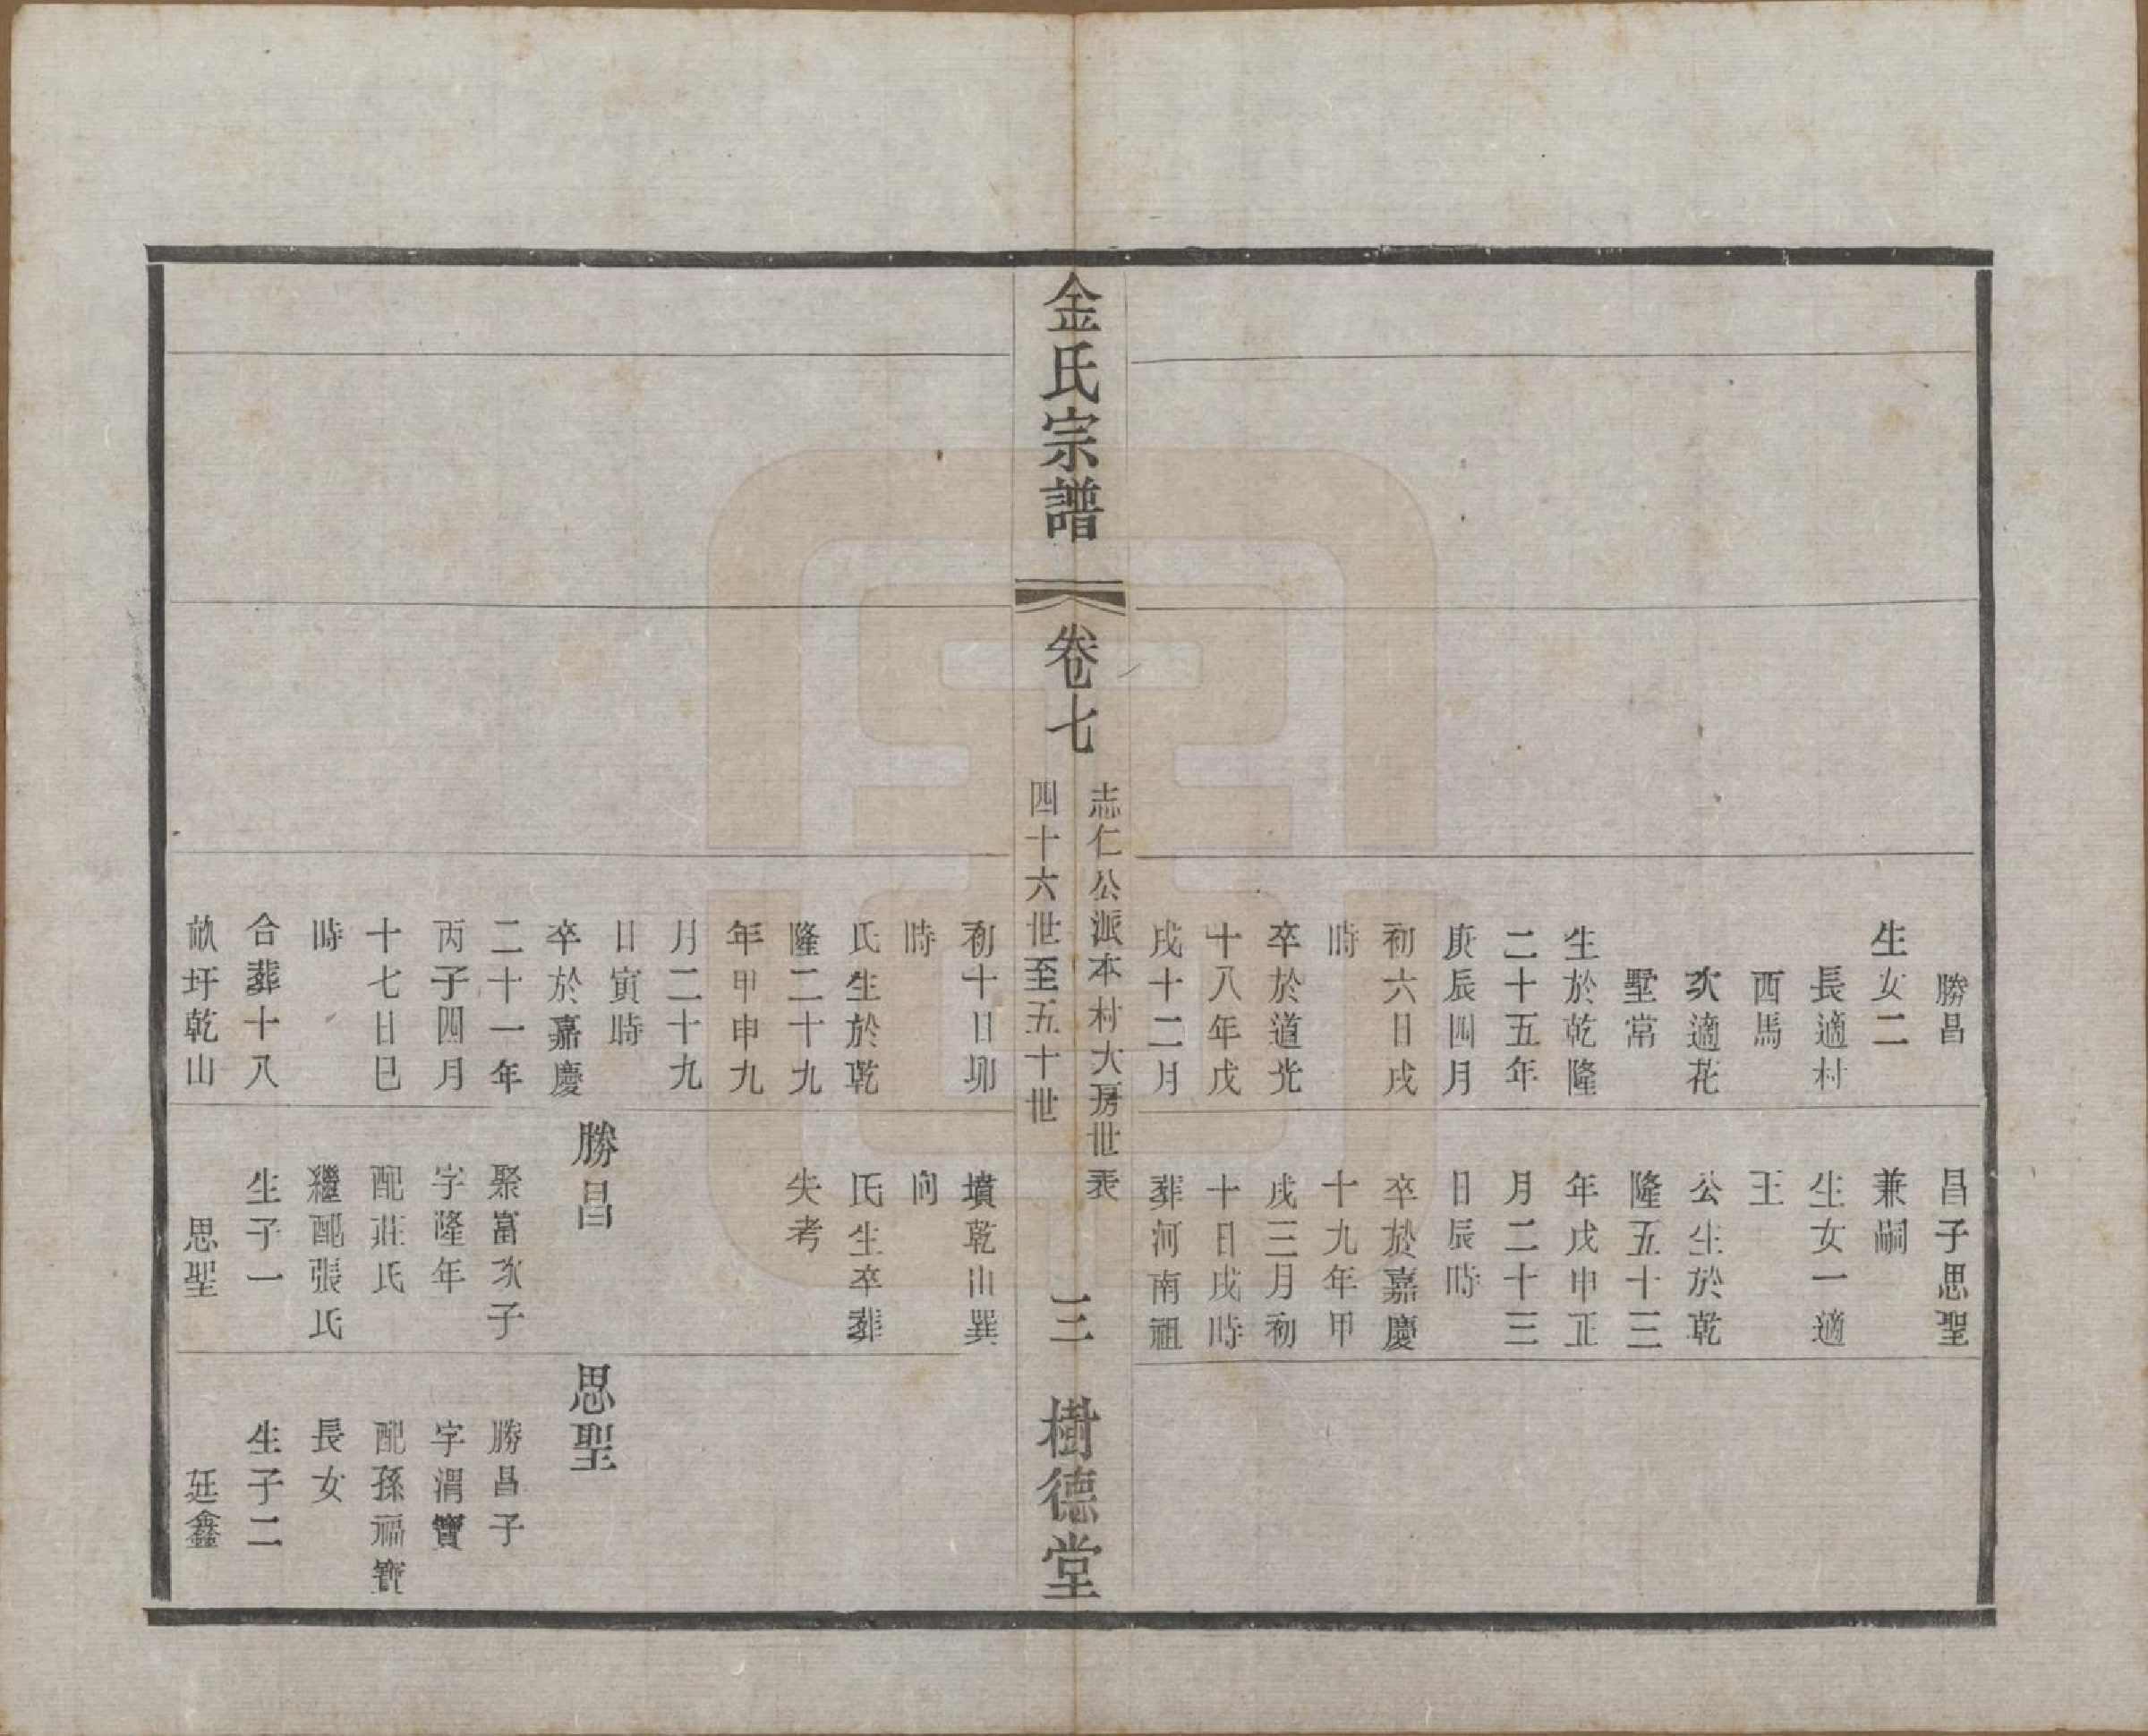 勝昌
生女二
長適村
西馬
次適花
墅常
生於乾隆
二十五年
庚辰四月
初六日戌
時
卒於道光
十八年戊
戌十二月
昌子思聖
兼嗣
生女一適
王
公生於乾
隆五十三
年戊申正
月二十三
日辰時
卒於嘉慶
十九年甲
戌三月初
十日戌時
葬河南祖
金氏宗譜
卷七
志仁公派本村大房世表
四十六世至五十世
三
樹德堂
初十日卯
時
氏生於乾
隆二十九
年甲申九
月二十九
日寅時
卒於嘉慶
二十一年
丙子四月
十七日巳
時
合葬十八
畝圩乾山
墳乾山巽
向
氏生卒葬
失考
勝昌
聚富次子
字隆年
配莊氏
繼配張氏
生子一
思聖
思聖
勝昌子
字渭寶
配孫福寶
長女
生子二
廷鑫